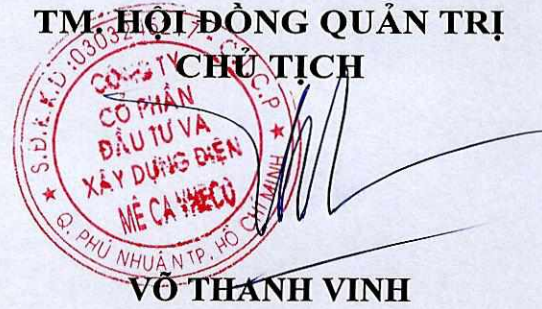 TM. HỘI ĐỒNG QUẢN TRỊ
CHỦ TỊCH
CÔNG TY
CỔ PHẦN
ĐẦU TƯ VÀ
XÂY DỰNG ĐIỆN
MÊ CA
S.Đ.K.K.D:
C.P
Q. PHÚ NHUẬN TP. HỒ CHÍ MINH
VÕ THANH VINH